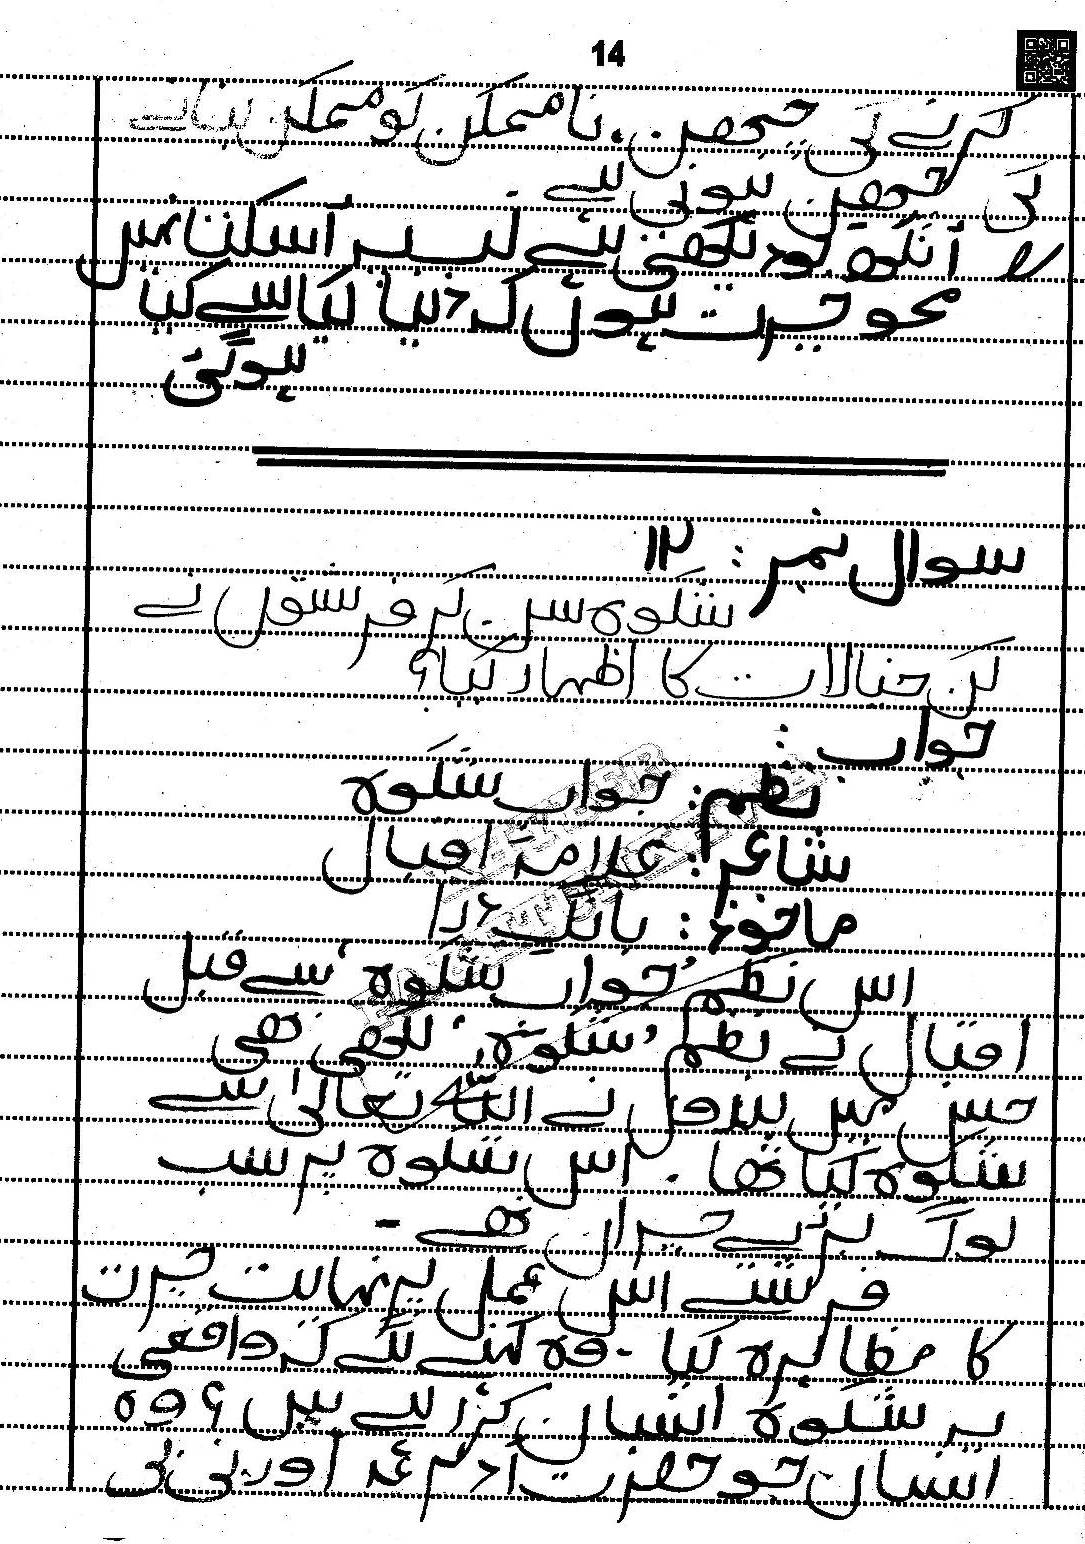 14
کرنے کی جیحھن، ناممکن کو ممکن بنانے
کی جیحھن ہوتی ہے
آنکھ جو کچھ دیکھتی ہے لب پہ آ سکتا نہیں
محو حیرت ہوں کہ دنیا کیا سے کیا
ہوگئی
سوال نمبر: ۱۲
شکوہ سن کر فرشتوں نے
کن خیالات کا اظہار کیا؟
جواب:
نظم: جواب شکوہ
شاعر: علامہ اقبال
ماخوذ: بانگ درا
اس نظم ’جواب شکوہ‘ سے قبل
اقبال نے نظم ’شکوہ‘ لکھی تھی
جس میں بندوں نے اللہ تعالیٰ سے
شکوہ کیا تھا۔ اس شکوہ پر سب
لوگ بڑے حیران تھے۔
فرشتے اس عمل پر نہایت حیرت
کا مظاہرہ کیا۔ وہ کہنے لگے کہ واقعی
یہ شکوہ انسان کر رہے ہیں؟ وہ
انسان جو حضرت آدمؑ اور بی بی